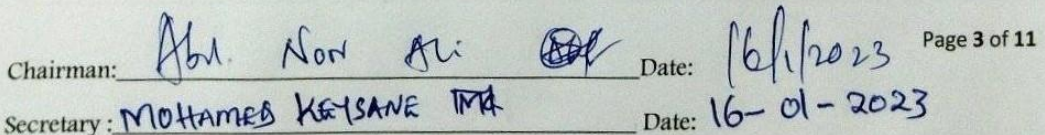 Chairman: Abd. Nor Ali Date: 16/1/2023 Page 3 of 11
Secretary : MOHAMED KEYSANE Date: 16-01-2023